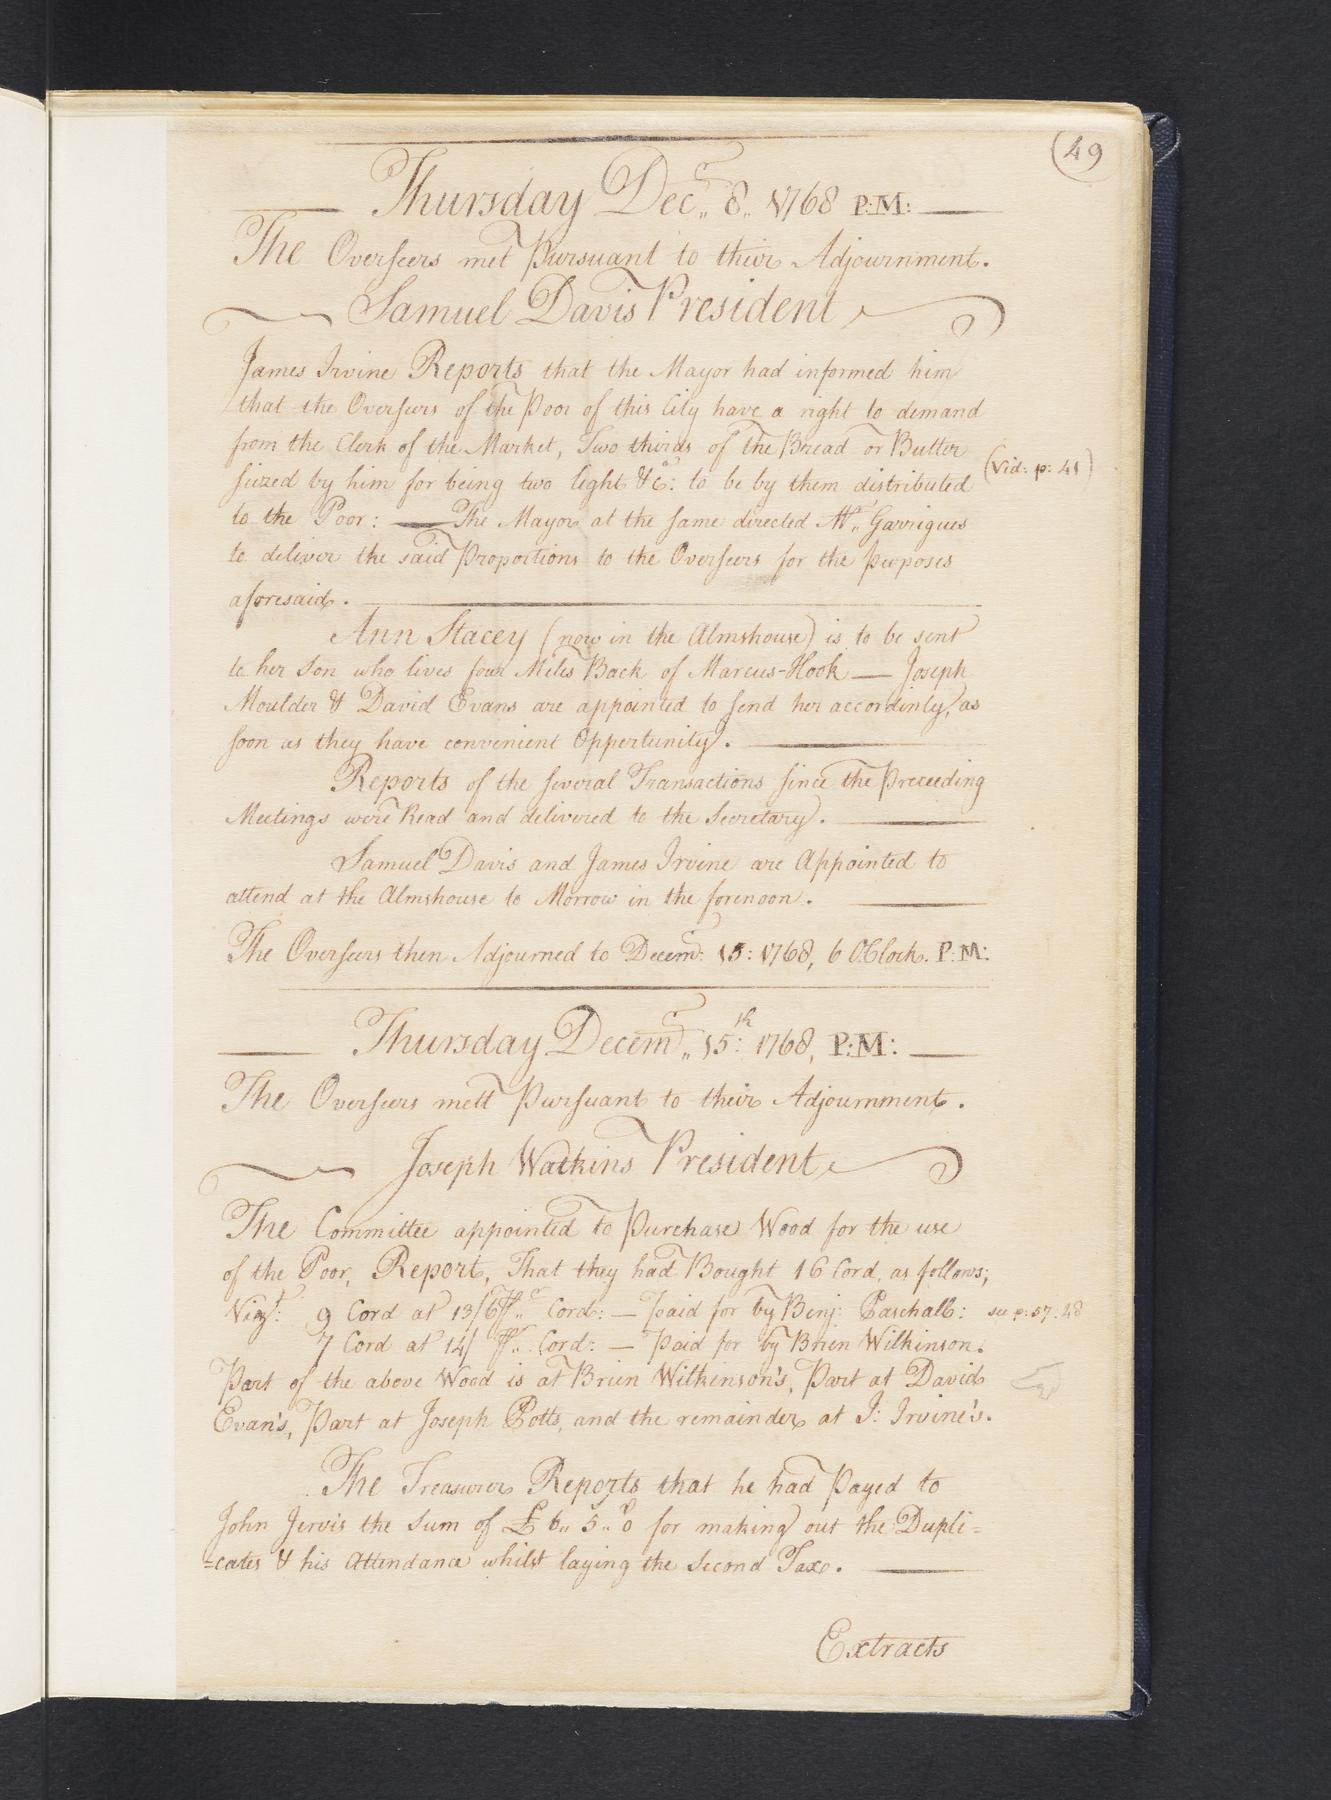 (49
Thursday Decr,, 8,, 1768 P:M:
The Overseers met Pursuant to their Adjournment.
Samuel Davis President
James Irvine Reports that the Mayor had informed him
that the Overseers of the Poor of this City have a right to demand
from the Clerk of the Market, Two thirds of the Bread or Butter
siezed by him for being two light &ca: to be by them distributed
(Vid: p: 41)
to the Poor: — The Mayor at the same directed Mr,, Garrigues
to deliver the said Proportions to the Overseers for the purposes
aforesaid.
Ann Stacey (now in the Almshouse) is to be sent
to her Son who lives four Miles Back of Marcus-Hook — Joseph
Moulder & David Evans are appointed to send her accordinly, as
soon as they have convenient Oppertunity.
Reports of the several Transactions since the Preceeding
Meetings were Read and delivered to the Secretary.
Samuel Davis and James Irvine are Appointed to
attend at the Almshouse to Morrow in the forenoon.
The Overseers then Adjourned to Decemr: 15: 1768, 6 O'Clock. P:M:
Thursday Decemr,, 15th: 1768, P:M:
The Overseers mett Pursuant to their Adjournment.
Joseph Watkins President
The Committee appointed to Purchase Wood for the use
of the Poor, Report, That they had Bought 16 Cord, as follows;
Vizt: 9 Cord at 13/6 Pr,, Cord: — Paid for by Benj: Paschall: see p: 57: 48
7 Cord at 14/ Pr,, Cord: — Paid for by Brien Wilkinson.
Part of the above Wood is at Brien Wilkinson's, Part at David
Evan's, Part at Joseph Potts, and the remainder at J: Irvine's.
The Treasurer Reports that he had Payed to
John Jervis the Sum of £6,, 5,, 0 for making out the Dupli=
=cates & his Attendance whilst laying the Second Tax.
Extracts